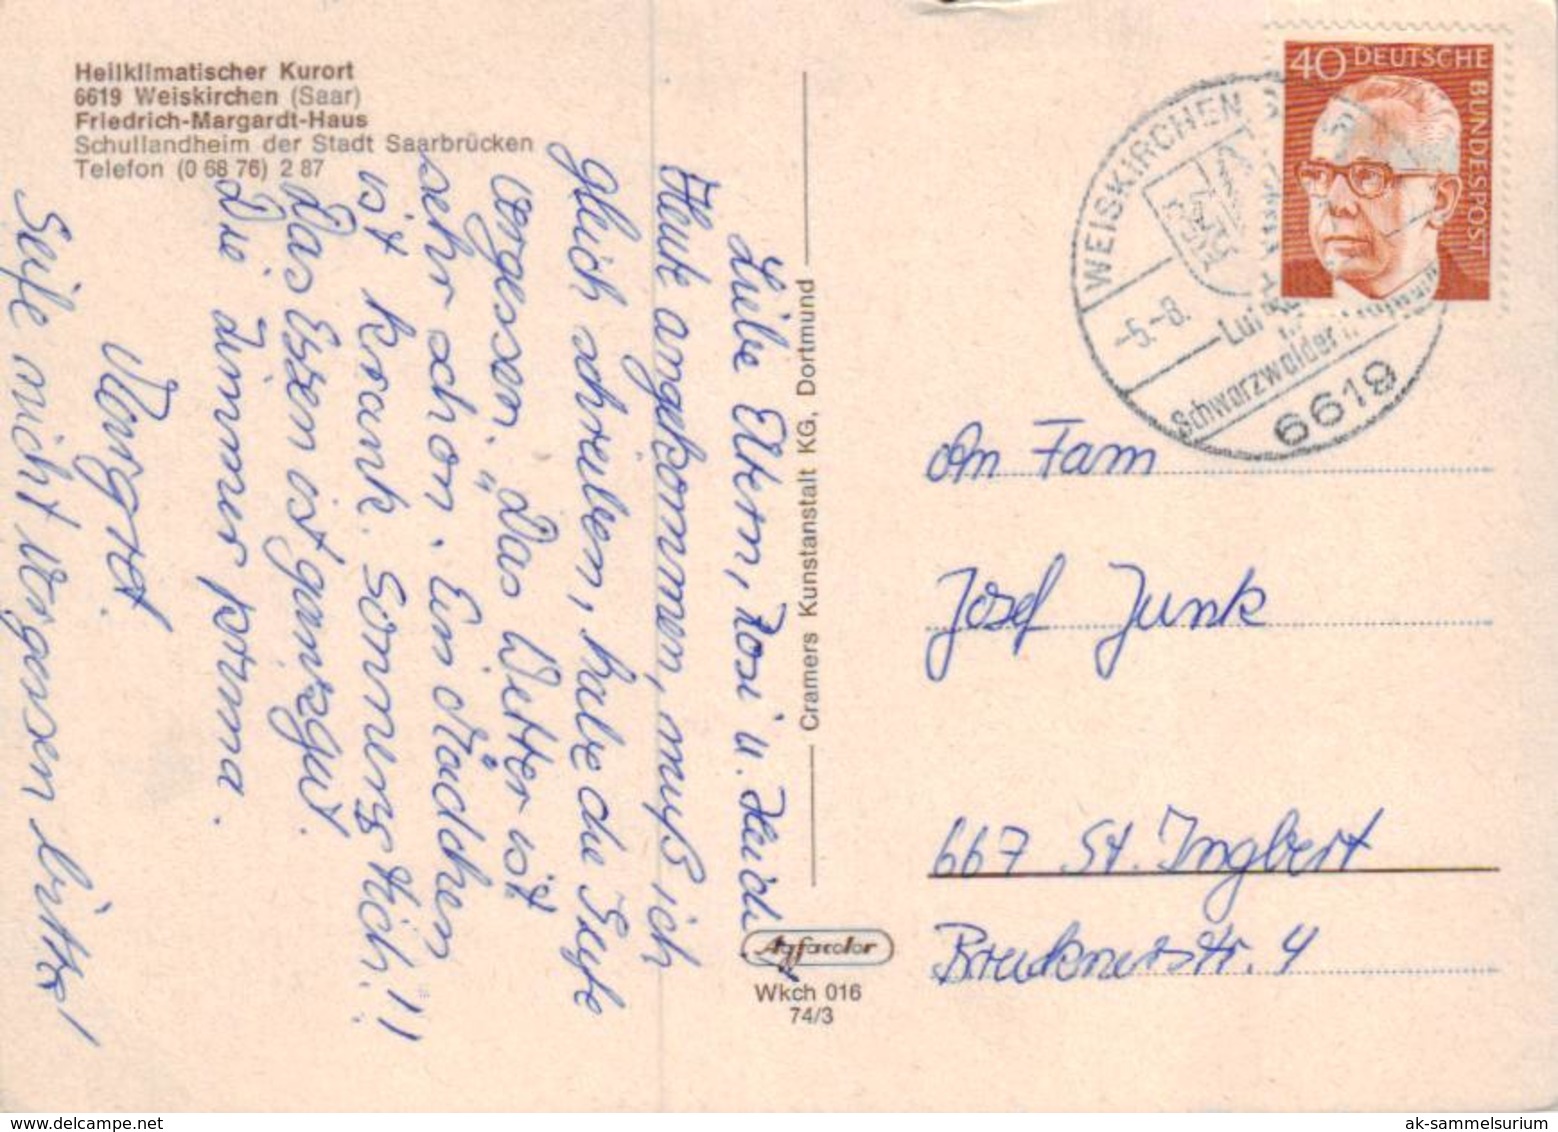 Heilklimatischer Kurort
6619 Weiskirchen (Saar)
Friedrich-Margardt-Haus
Schullandheim der Stadt Saarbrücken
Telefon (0 68 76) 2 87
Liebe Eltern, Rosi u. Heidi
Heute angekommen, muß ich
gleich schreiben, habe die Seife
vergessen. „Das Wetter ist
sehr schon. Ein Mädchen
ist krank. Sonnenstich!!
Das Essen ist ganz gut.
Die Zimmer prima.
Margret.
Seife nicht vergessen bitte!
Cramers Kunstanstalt KG, Dortmund
Agfacolor
Wkch 016
74/3
40 DEUTSCHE
BUNDESPOST
WEISKIRCHEN
-5.-8.
Schwarzwälder
6619
An Fam
Josef Junk
667 St. Ingbert
Brucknerstr. 4
ak-sammelsurium
www.delcampe.net